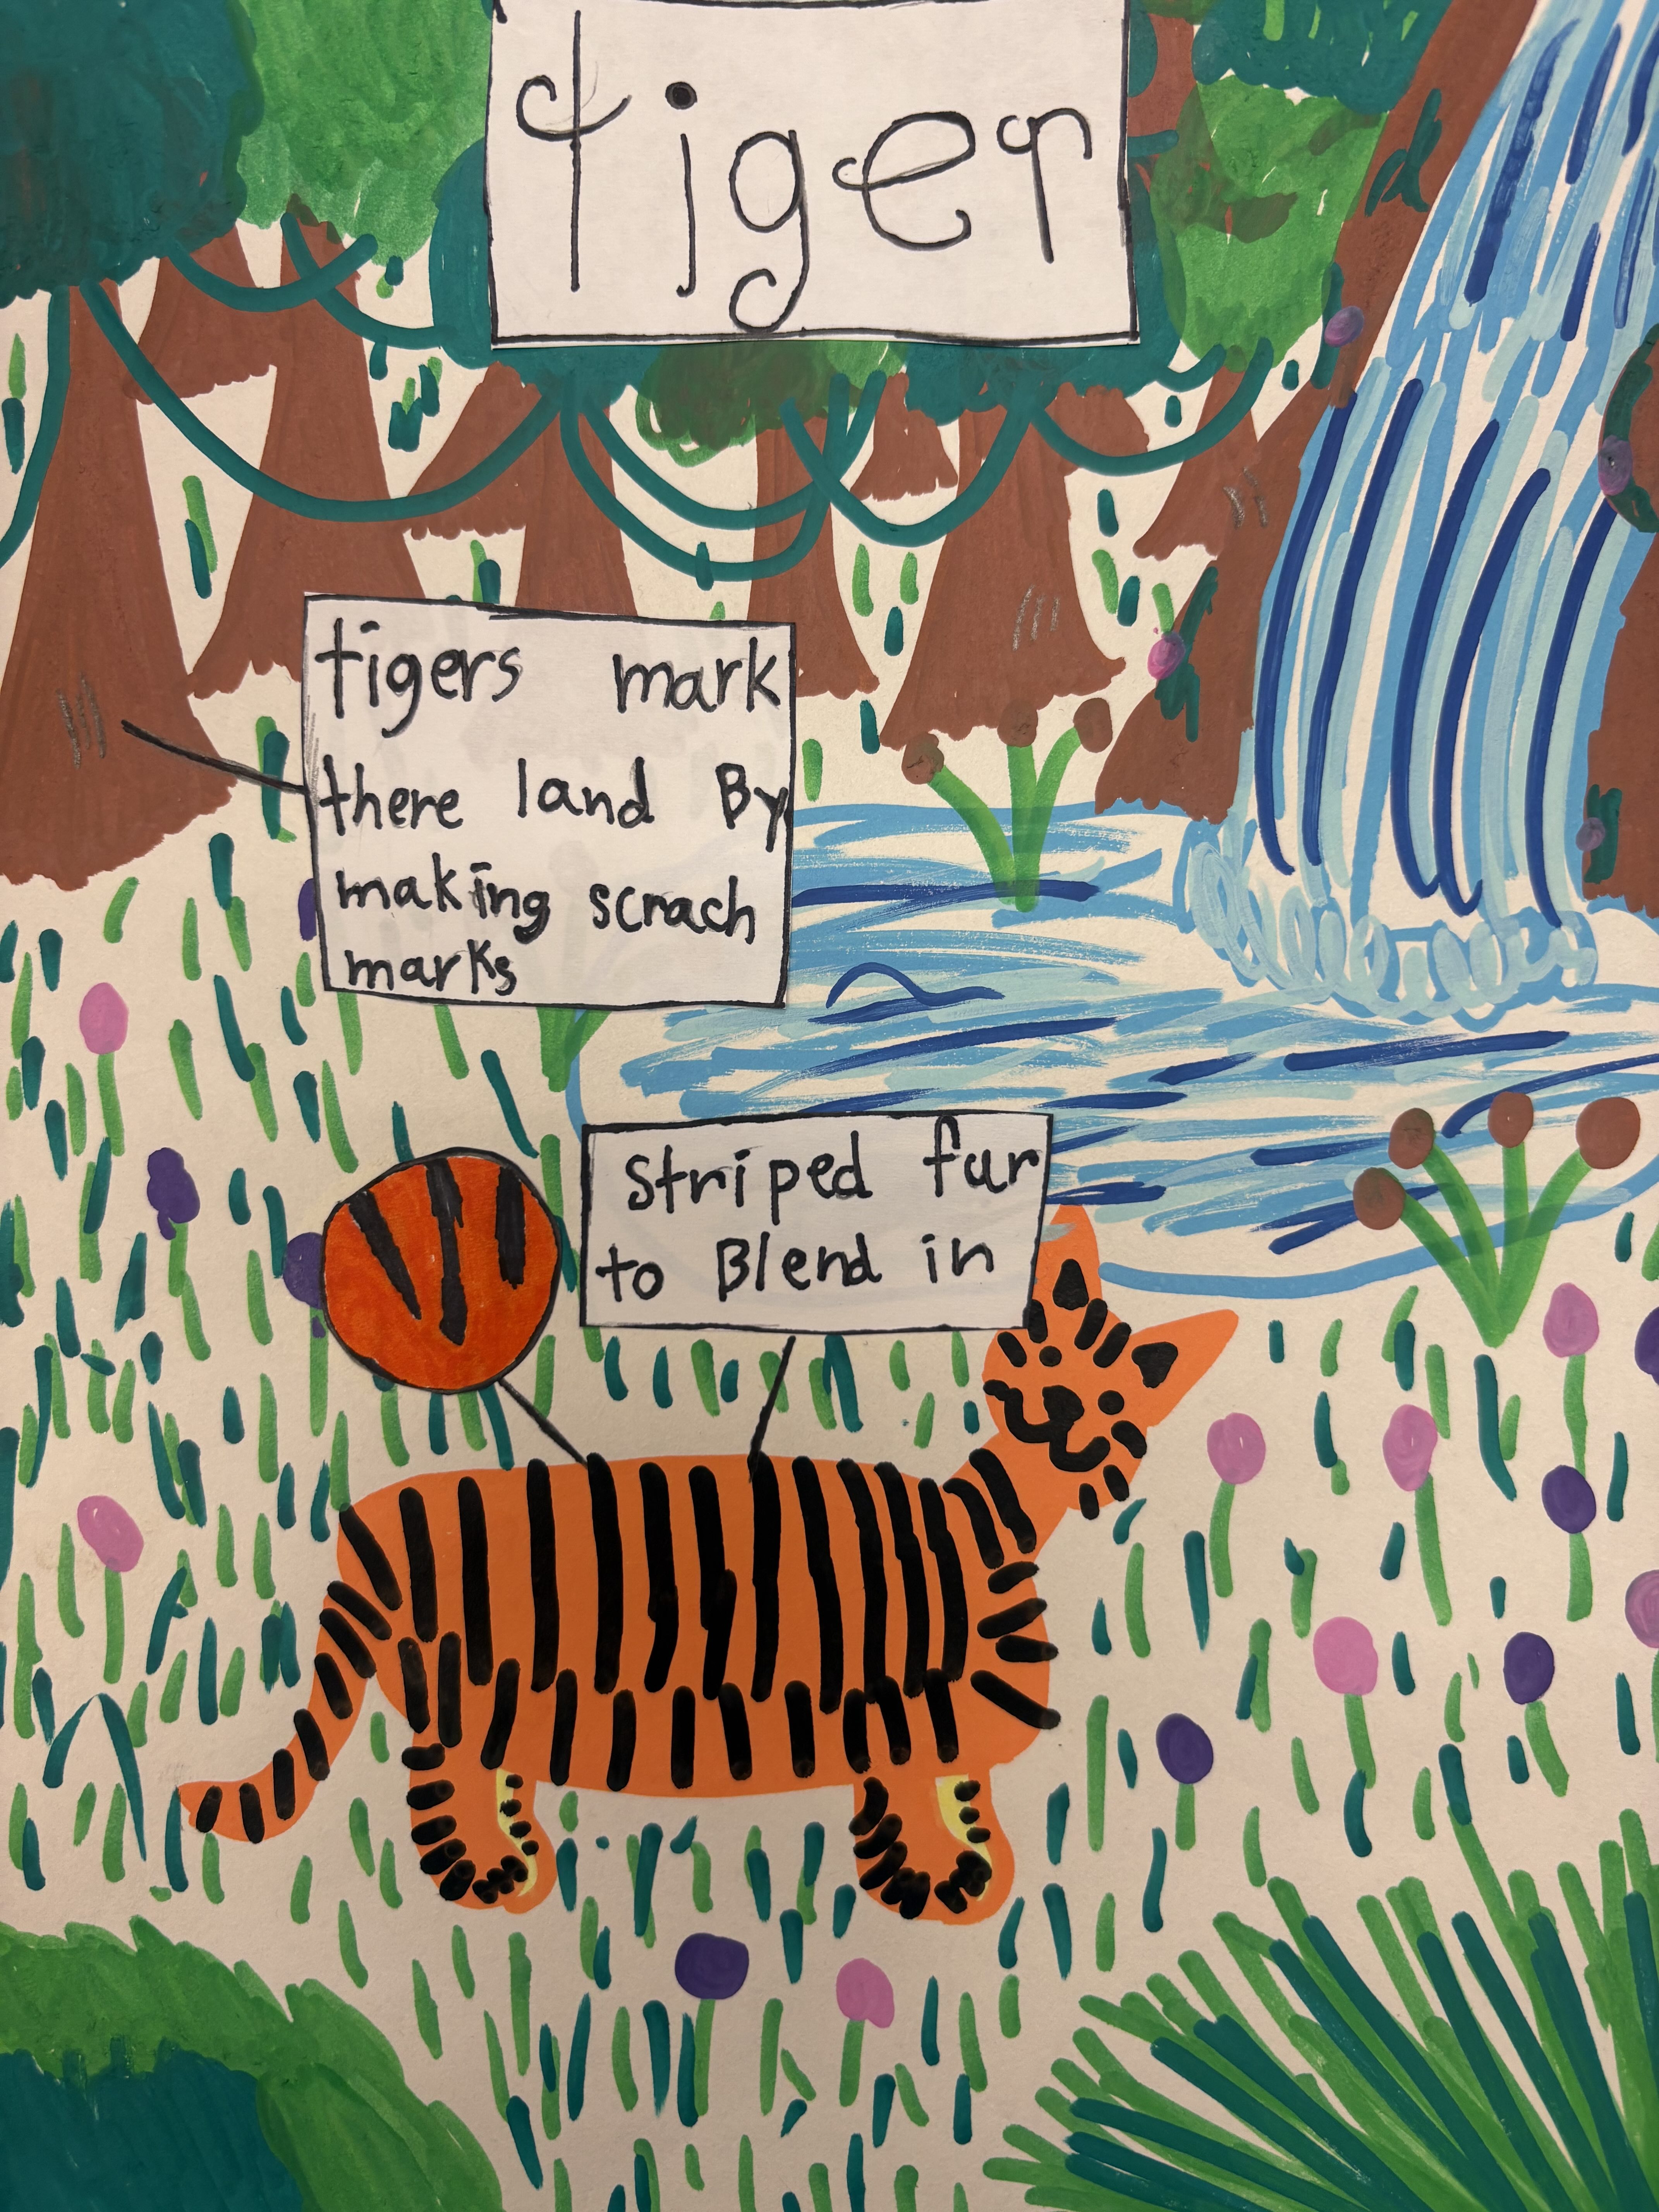 tiger
tigers mark
there land By
making scrach
marks
striped fur
to Blend in